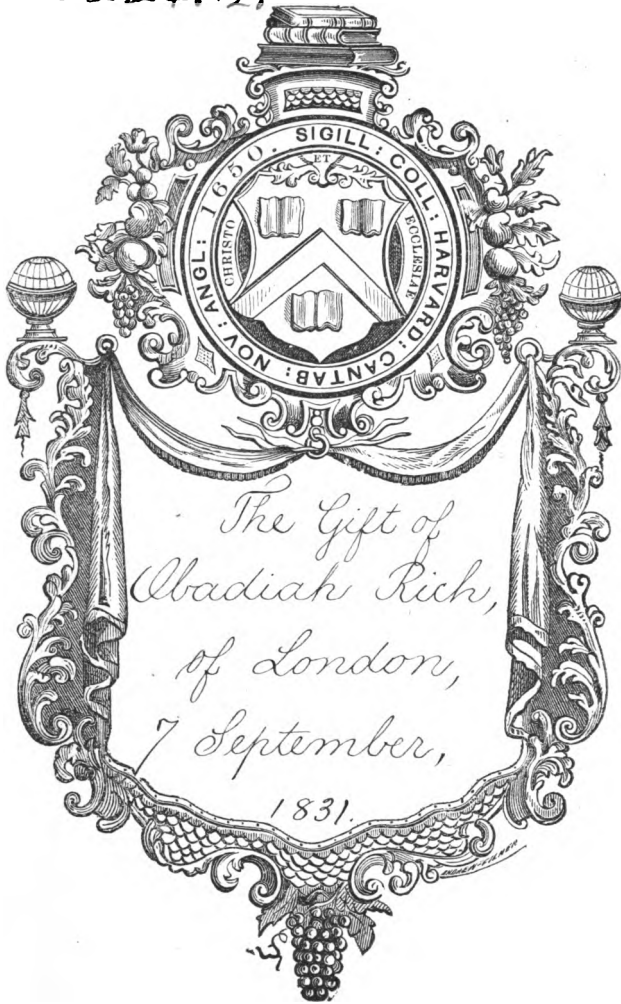 SIGILL: COLL: HARVARD: CANTAB: NOV: ANGL: 1650.
ET
CHRISTO
ECCLESIAE
The Gift of
Obadiah Rich,
of London,
7 September,
1831.